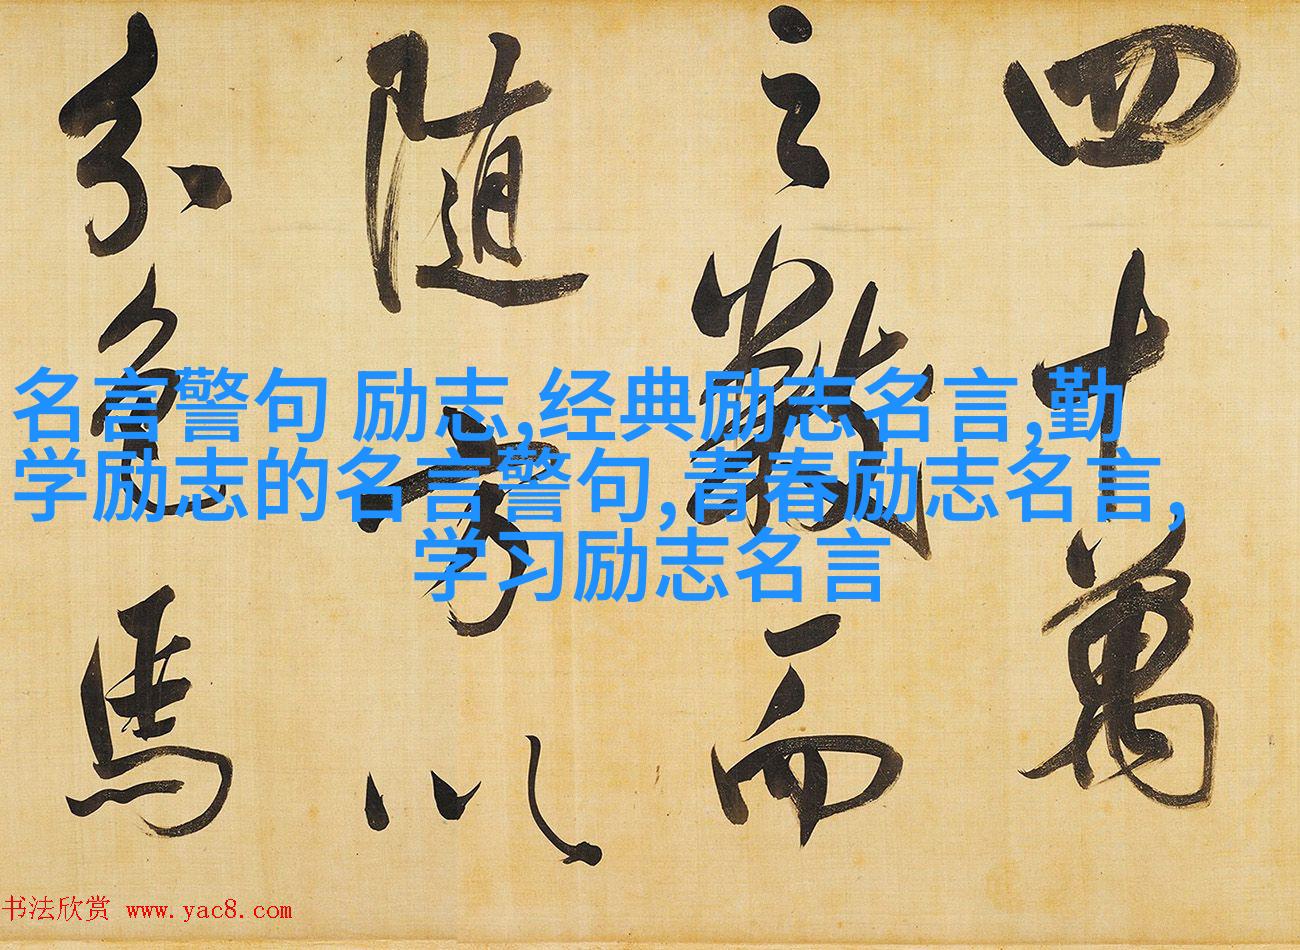 四十萬
之數而
隨方以
分色馬
名言警句 励志,经典励志名言,勤
学励志的名言警句,青春励志名言,
学习励志名言
书法欣赏 www.yac8.com